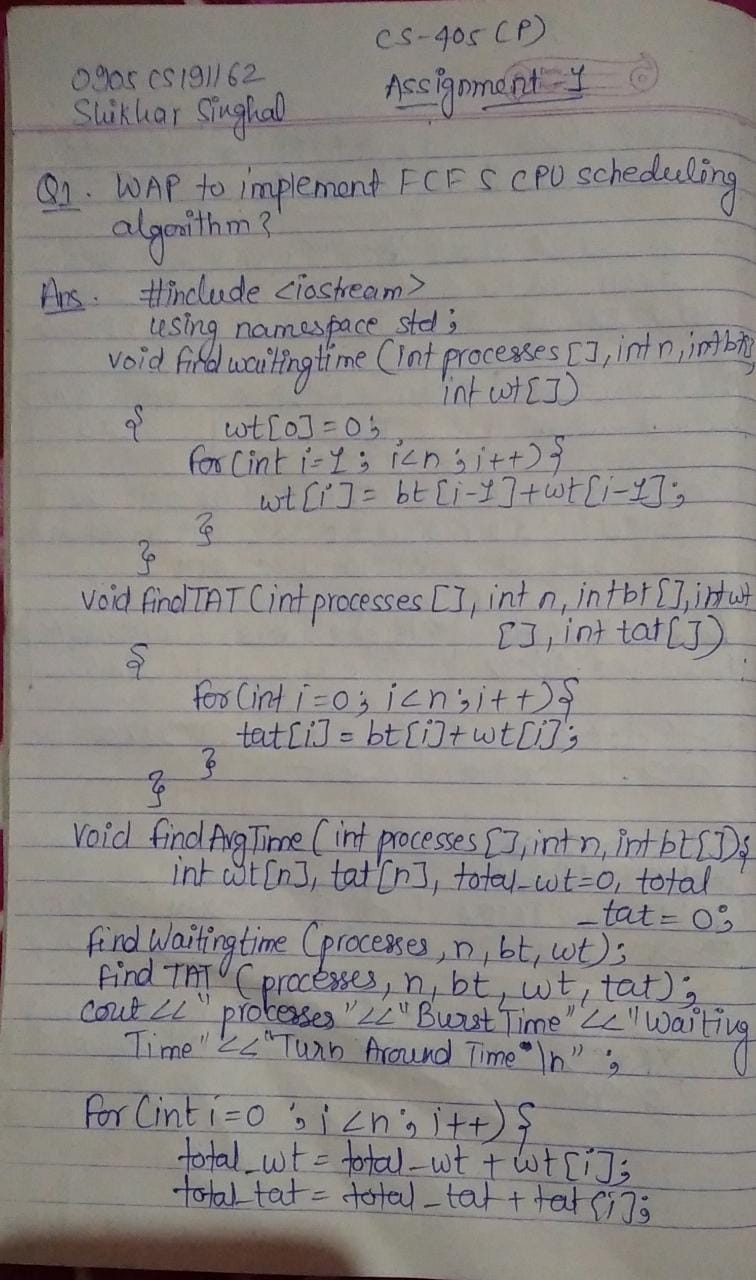 CS-405 (P)
0905 CS191162
Assignment-1
Shikhar Singhal
Q1. WAP to implement FCFS CPU scheduling
algorithm?
Ans. #include <iostream>
using namespace std;
void findwaitingtime (int processes [], int n, int bt[],
int wt[])
{ wt[0]=0;
for (int i=1; i<n; i++){
wt[i]= bt[i-1]+wt[i-1];
}
}
void findTAT (int processes [], int n, int bt[], int wt
[], int tat[])
{
for (int i=0; i<n; i++){
tat[i]= bt[i]+wt[i];
}
}
void findAvgTime (int processes [], int n, int bt[]){
int wt[n], tat[n], total_wt=0, total
_tat = 0;
find Waitingtime (processes, n, bt, wt);
find TAT (processes, n, bt, wt, tat);
cout << " processes "<<" Burst Time" <<" Waiting
Time" <<"Turn Around Time \n" ;
for (int i=0 ; i<n ; i++){
total_wt = total_wt + wt[i];
total_tat = total_tat + tat[i];